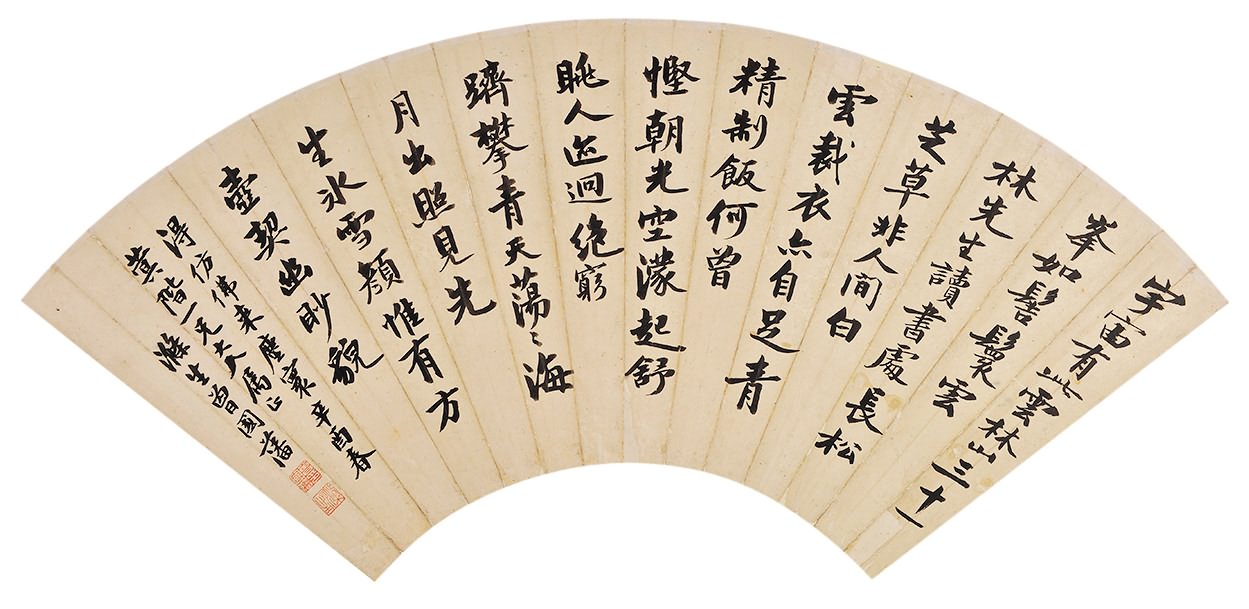 宇宙有此雲林山三十一
峯如髻鬟雲
林先生讀書處長松
芝草非人間白
雲裁衣亦自足青
精制飯何曾
慳朝光空濛起舒
眺人迹迥絕窮
躋攀青天蕩〻海
月出照見先
生氷雪顏惟有方
壺契幽眇貌
得仿佛來塵寰辛酉春
階一兄大人屬正
滌生曾國藩